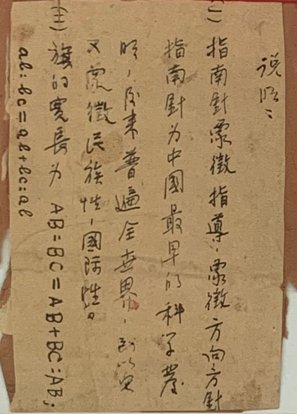 说明：
(一) 指南針象徵指導，象徵方向方針
指南針为中國最早的科学發
明，後来普遍全世界，所以它
又象徵民族性，國际性。
(二) 旗的寬長为 AB:BC=AB+BC:AB;
ab:bc=ab+bc:ab